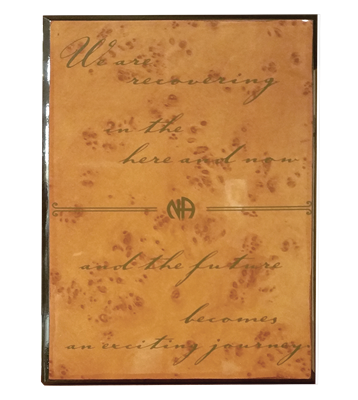 We are
recovering
in the
here and now
NA
and the future
becomes
an exciting journey.